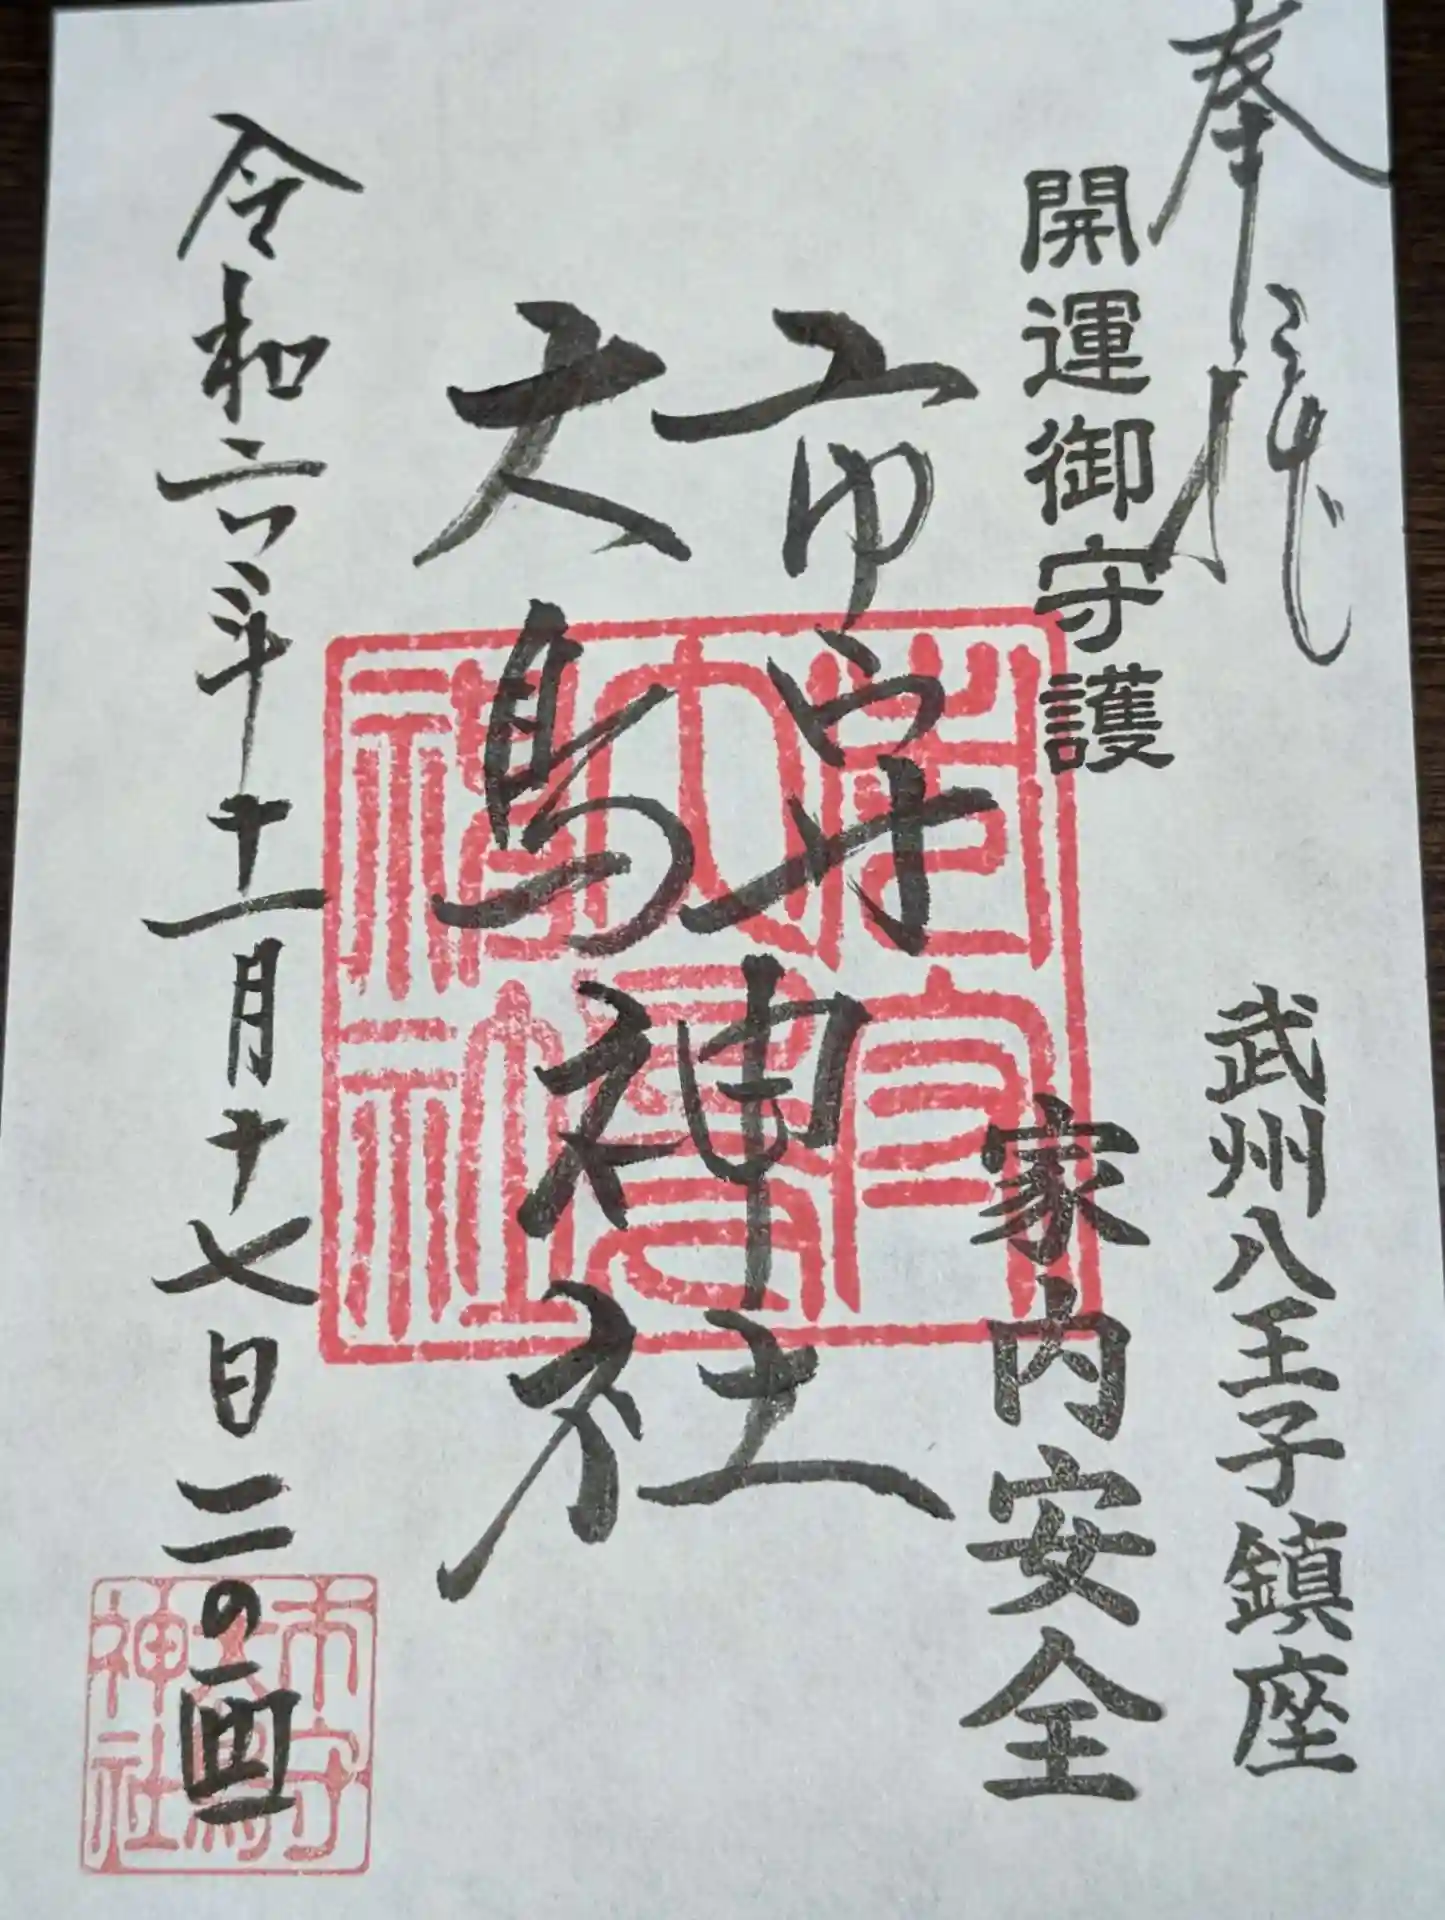 奉拝
武州八王子鎮座
開運御守護
家内安全
市守
大鳥神社
令和六年十一月十七日 二の酉
市守大鳥神社
市守大鳥神社